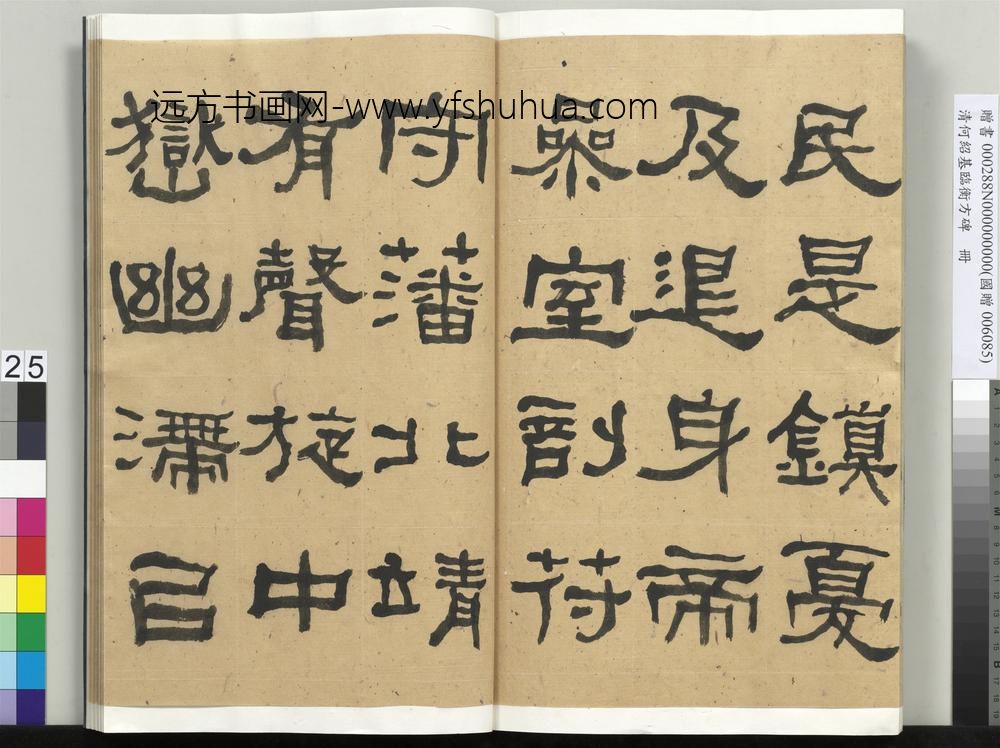 远方书画网-www.yfshuhua.com
民是鎮夏
及退身帝
室剖符
守藩北靖
有聲旋中
嶽幽滯
贈書 000288N000000000(國贈 006085)
清何紹基臨衡方碑 冊
25